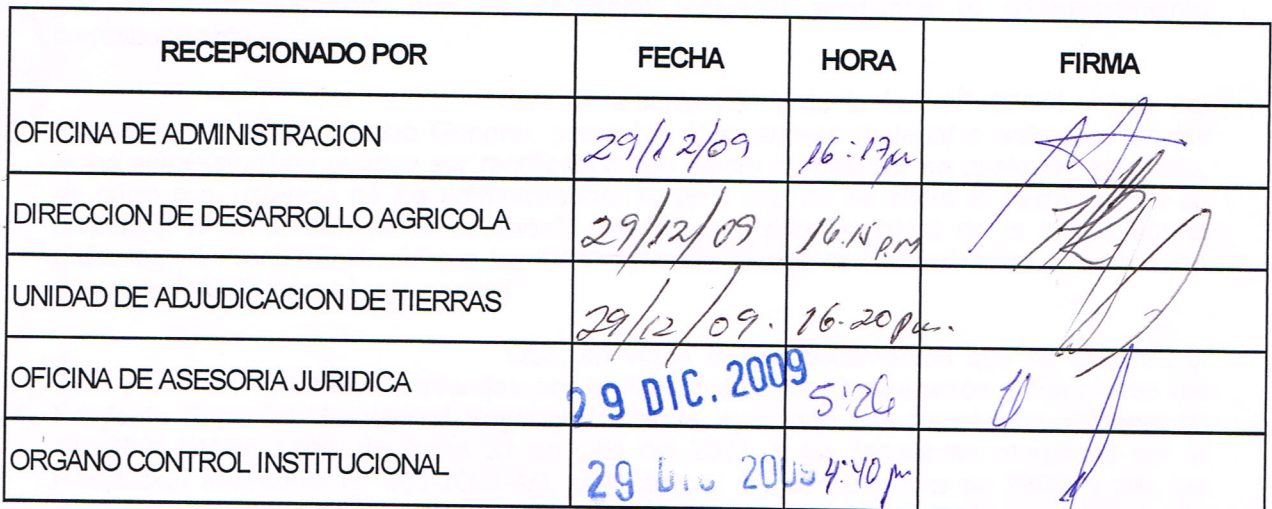 RECEPCIONADO POR FECHA HORA FIRMA
OFICINA DE ADMINISTRACION 29/12/09 16:17
DIRECCION DE DESARROLLO AGRICOLA 29/12/09 P.M
UNIDAD DE ADJUDICACION DE TIERRAS 29/12/09. 16.20
OFICINA DE ASESORIA JURIDICA 29 DIC. 2009 5:26
ORGANO CONTROL INSTITUCIONAL 29 DIC 2009 4:40 pm